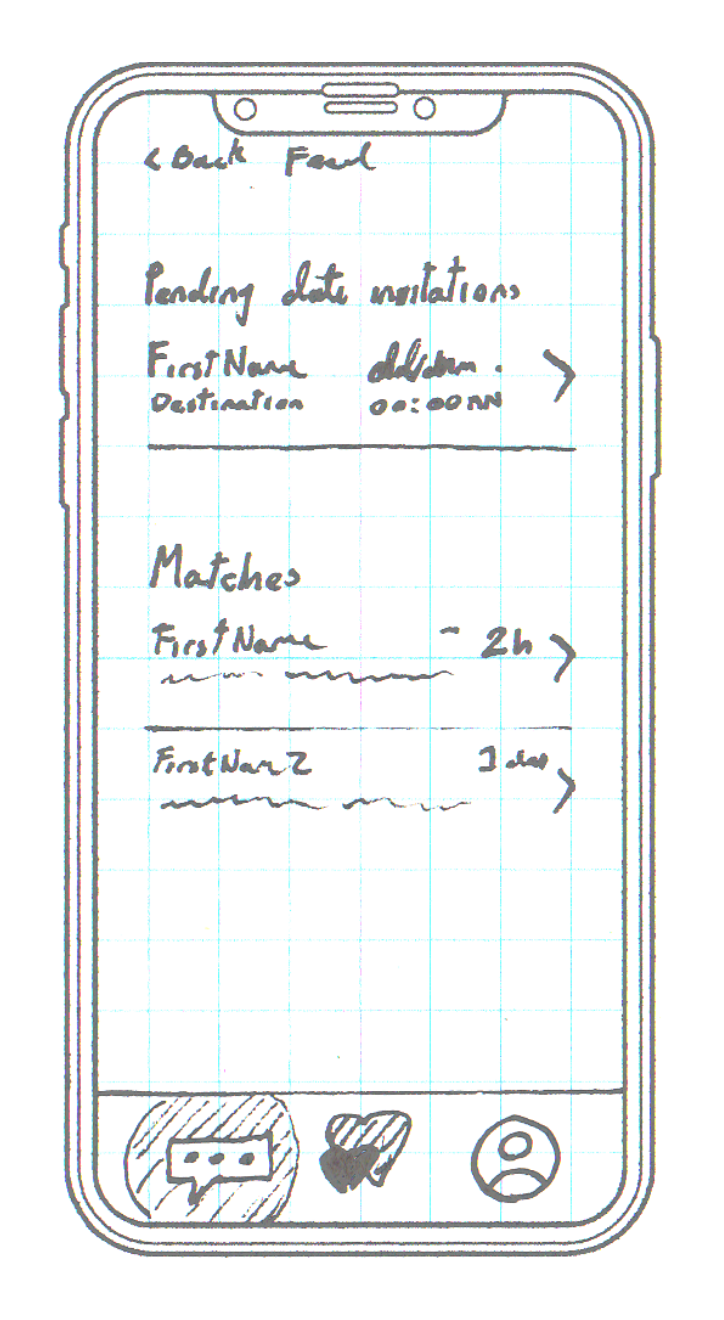 < Back
Pending date invitations
First Name
Destination 00:00
Matches
First Name 2h
First Nam 2 1